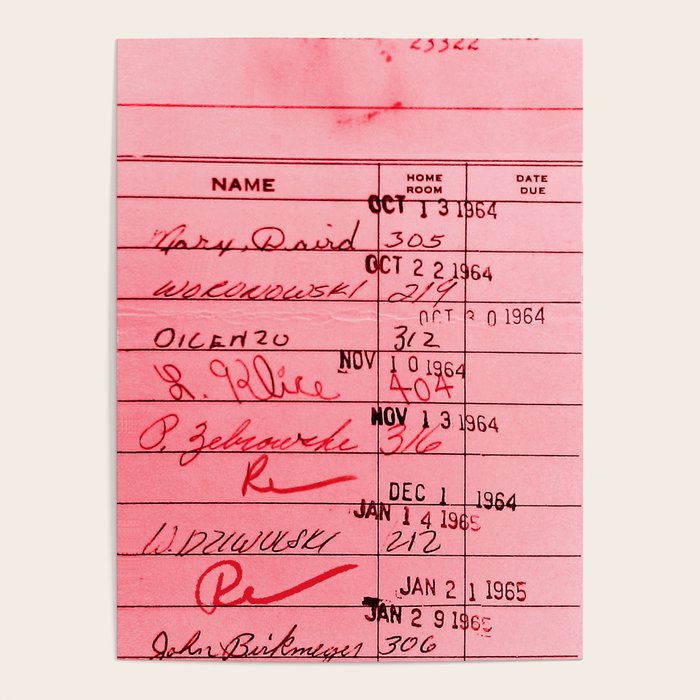 23322
NAME HOME ROOM DATE DUE
OCT 13 1964
Mary Baird 305
OCT 22 1964
WORONOWSKI 219
OCT 30 1964
DICENZO 312
NOV 10 1964
L. Klice 404
NOV 13 1964
P. Zebrowski 316
Re
DEC 1 1964
JAN 14 1965
W. DZIWULSKI 212
Re
JAN 21 1965
JAN 29 1965
John Birkmeyer 306